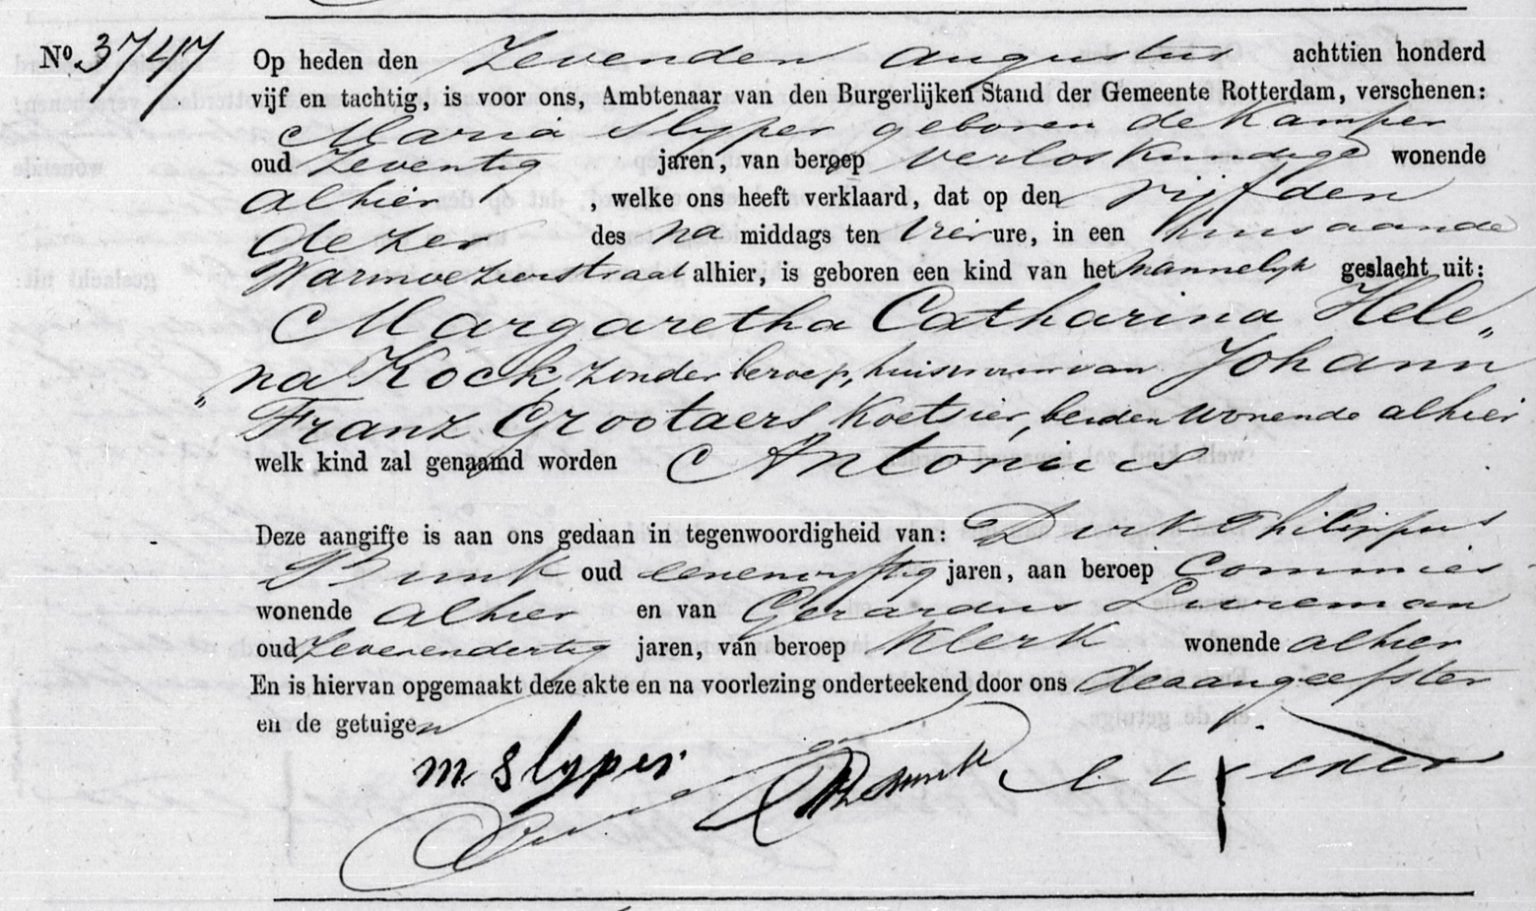 No. 3747 Op heden den Zevenden Augustus achttien honderd
vijf en tachtig, is voor ons, Ambtenaar van den Burgerlijken Stand der Gemeente Rotterdam, verschenen:
Maria Slyper geboren de Kamper
oud Zeventig jaren, van beroep verloskundige wonende
alhier, welke ons heeft verklaard, dat op den vijfden
dezer des na middags ten vier ure, in een huis aan de
Warmoezierstraat alhier, is geboren een kind van het mannelijk geslacht uit:
Margaretha Catharina Hele„
„na Kock, zonder beroep, huisvrouw van Johann
Franz Grootaers Koetsier, beiden wonende alhier
welk kind zal genaamd worden Antonius
Deze aangifte is aan ons gedaan in tegenwoordigheid van: Dirk Philippus
Bunk oud eenenvyftig jaren, aan beroep Commies
wonende alhier en van Gerardus Lureman
oud Zevenendertig jaren, van beroep Klerk wonende alhier
En is hiervan opgemaakt deze akte en na voorlezing onderteekend door ons de aangeefster
en de getuigen
M. Slyper